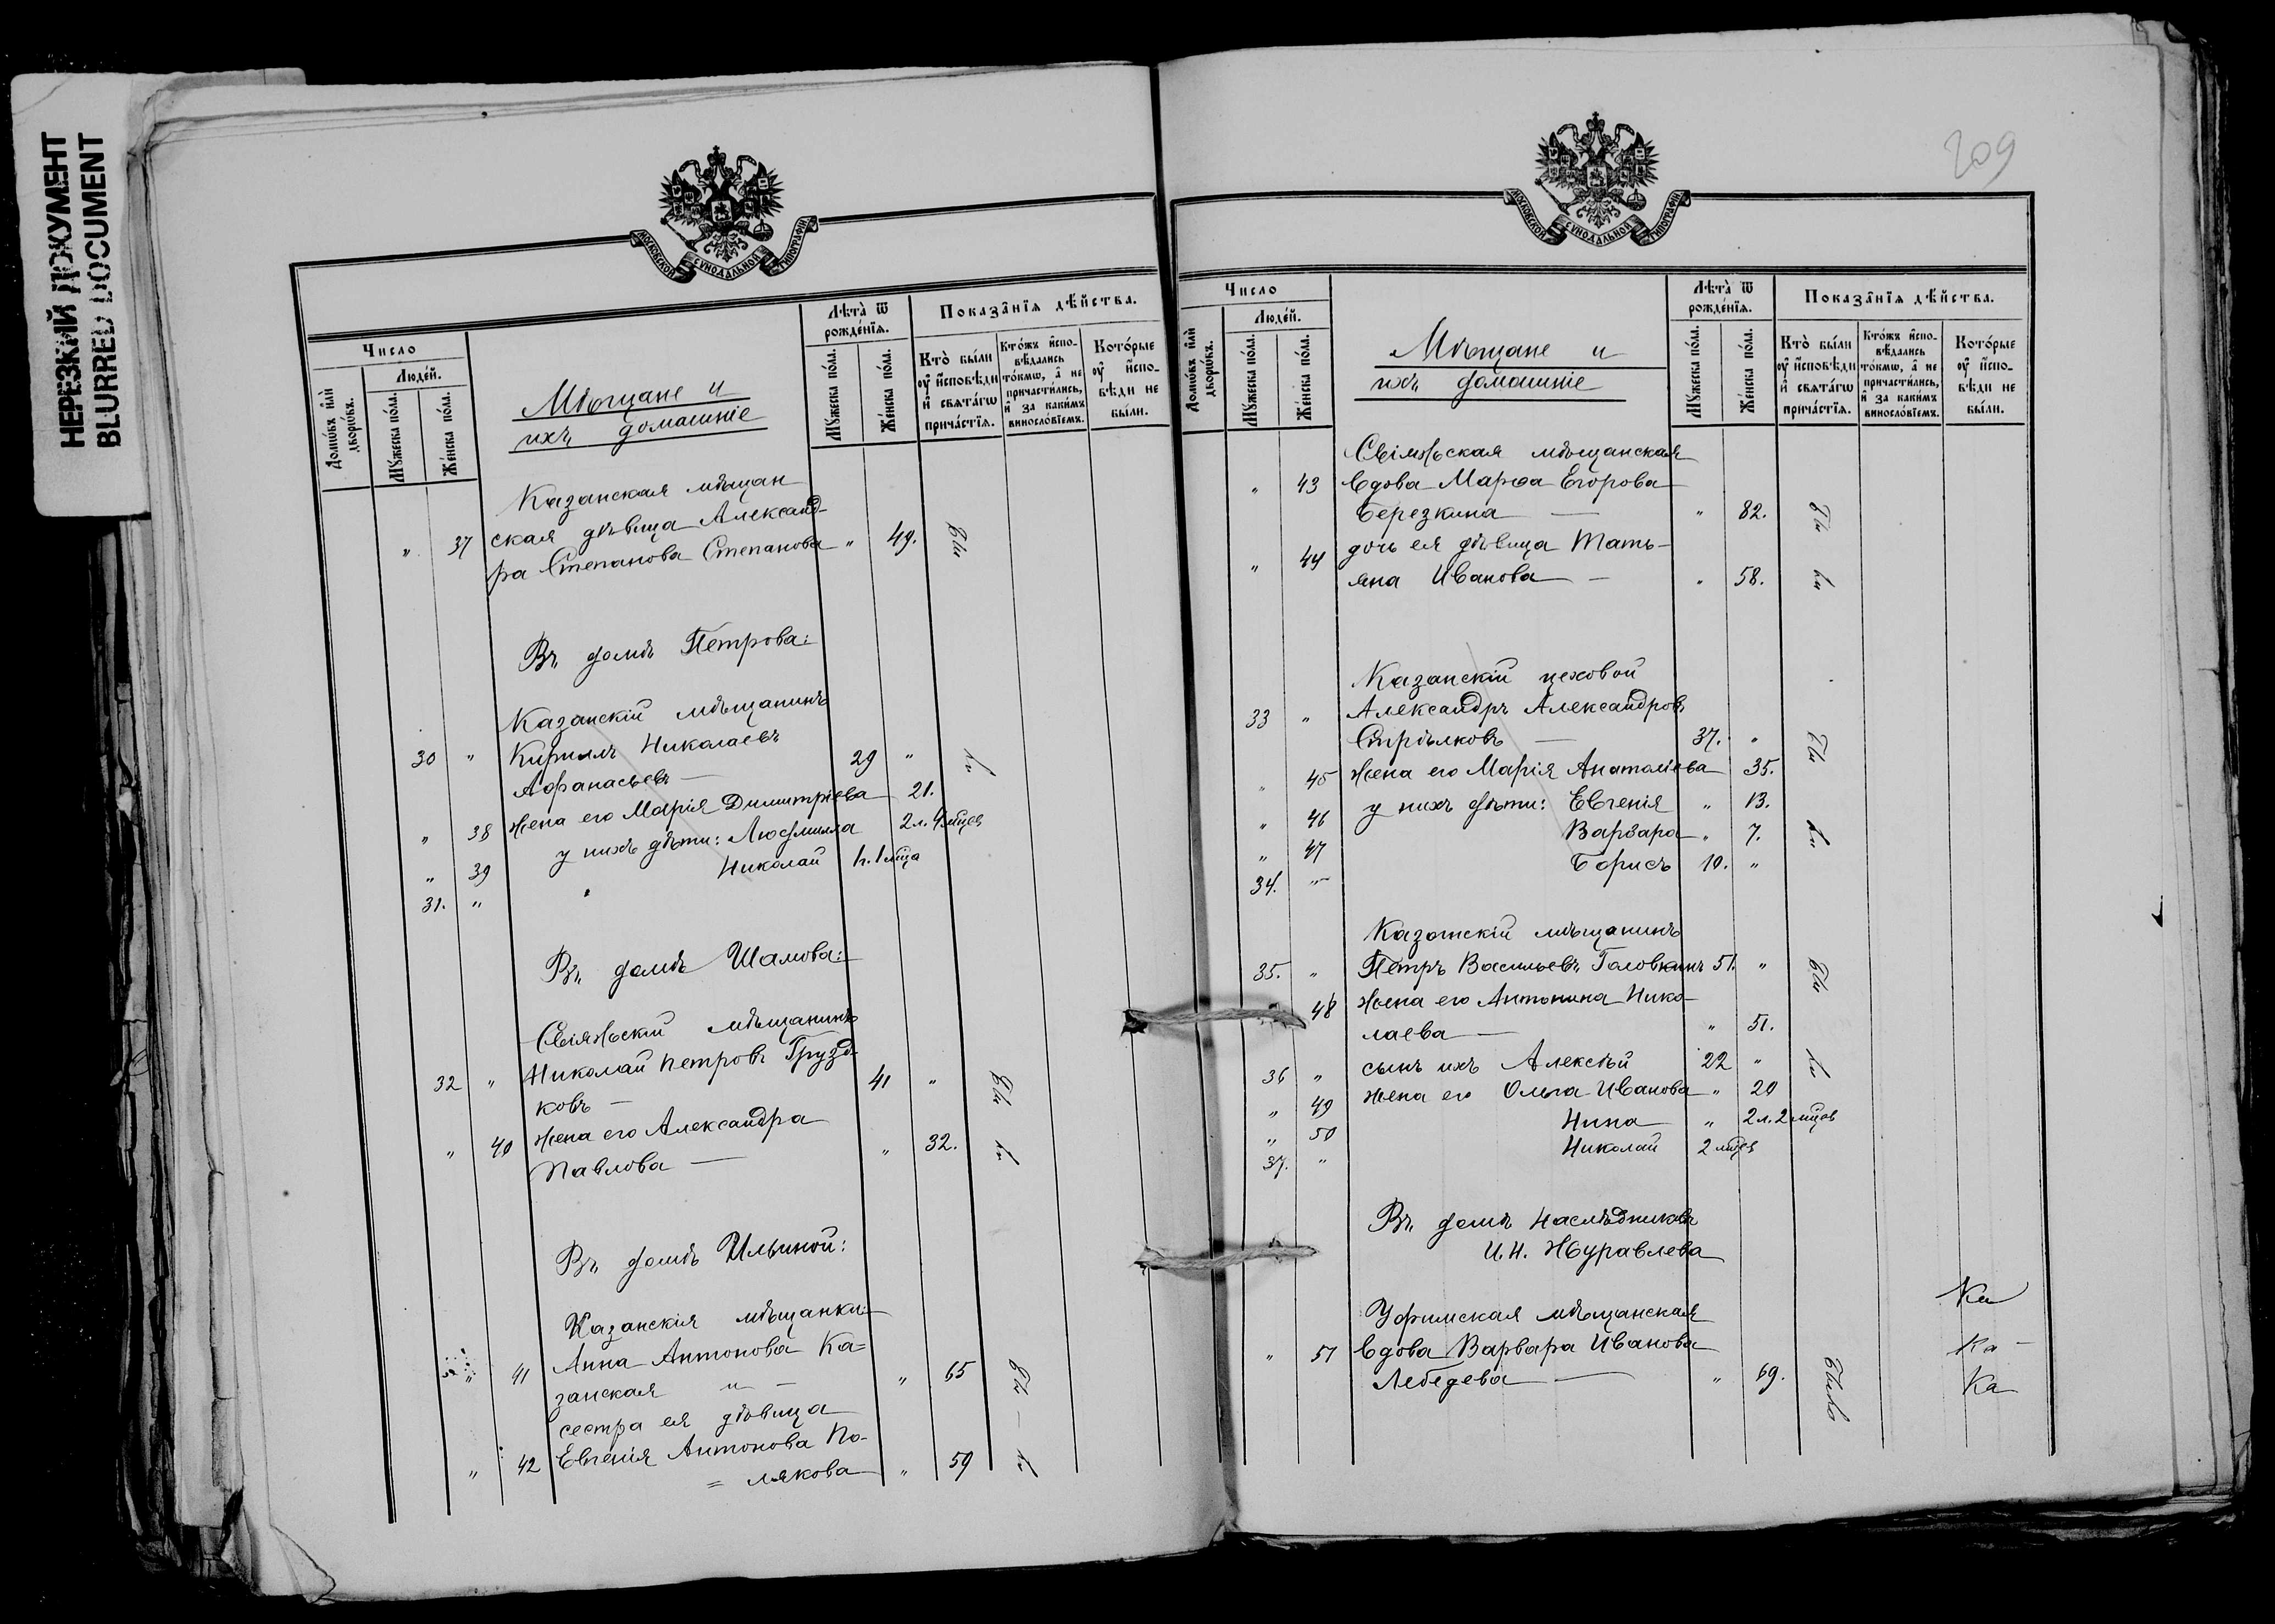 НЕРЕЗКИЙ ДОКУМЕНТ
BLURRED DOCUMENT
МОСКОВСКОЙ СУНОДАЛЬНОЙ ТИПОГРАФІИ
Число
Людей.
Домѡвъ или дворѡвъ.
Мужеска пола.
Женска пола.
Мѣщане и
ихъ домашніе
Лѣта ѿ рожденія.
Мужеска пола.
Женска пола.
Показанія дѣйства.
Кто были
оу исповѣди
и святагѡ
причастія.
Ктожъ испо-
вѣдались
токмѡ, а не
причастились,
и за какимъ
винословіемъ.
Которые
оу испо-
вѣди не
были.
Казанская мѣщан
" 37 ская дѣвица Александ-
ра Степанова Степанова " 49.
Въ домѣ Петрова:
Казанскій мѣщанинъ
30 " Кириллъ Николаевъ
Афанасьевъ — 29 "
" 38 жена его Марія Димитріева 21.
" 39 у нихъ дѣти: Людмила 2 л. 4 мѣцев
31. " Николай 1 г. 1 мѣца
Въ домѣ Шамова:
Свіяжскій мѣщанинъ
32 " Николай Петровъ Грузд-
ковъ — 41 "
" 40 жена его Александра
Павлова — " 32.
Въ домѣ Ильиной:
Казанскія мѣщанки:
" 41 Анна Антонова Ка=
занская и — " 65
сестра ея дѣвица
" 42 Евгенія Антонова По-
= лякова " 59
209
МОСКОВСКОЙ СУНОДАЛЬНОЙ ТИПОГРАФІИ
Число
Людей.
Домѡвъ или дворѡвъ.
Мужеска пола.
Женска пола.
Мѣщане и
ихъ домашніе
Лѣта ѿ рожденія.
Мужеска пола.
Женска пола.
Показанія дѣйства.
Кто были
оу исповѣди
и святагѡ
причастія.
Ктожъ испо-
вѣдались
токмѡ, а не
причастились,
и за какимъ
винословіемъ.
Которые
оу испо-
вѣди не
были.
Свіяжская мѣщанская
" 43 вдова Марѳа Егорова
Березкина — " 82.
" 44 дочь ея дѣвица Тать-
яна Иванова — " 58.
Казанскій цеховой
33 " Александръ Александровъ
Стрѣлковъ — 37. "
" 45 жена его Марія Анатоліева 35.
" 46 у нихъ дѣти: Евгенія " 13.
" 47 Варвара " 7.
34. " Борисъ 10. "
Казанскій мѣщанинъ
35. " Петръ Васильевъ Головкинъ 51. "
48 жена его Антонина Нико-
лаева — " 51.
36 " сынъ ихъ Алексѣй 22 "
" 49 жена его Ольга Иванова " 20
" 50 Нина " 2 л. 2 мѣцев
37. " Николай 2 мѣцев
Въ домѣ наслѣдниковъ
И. Н. Журавлева
Уфимская мѣщанская
" 51 вдова Варвара Иванова
Лебедева — " 69.